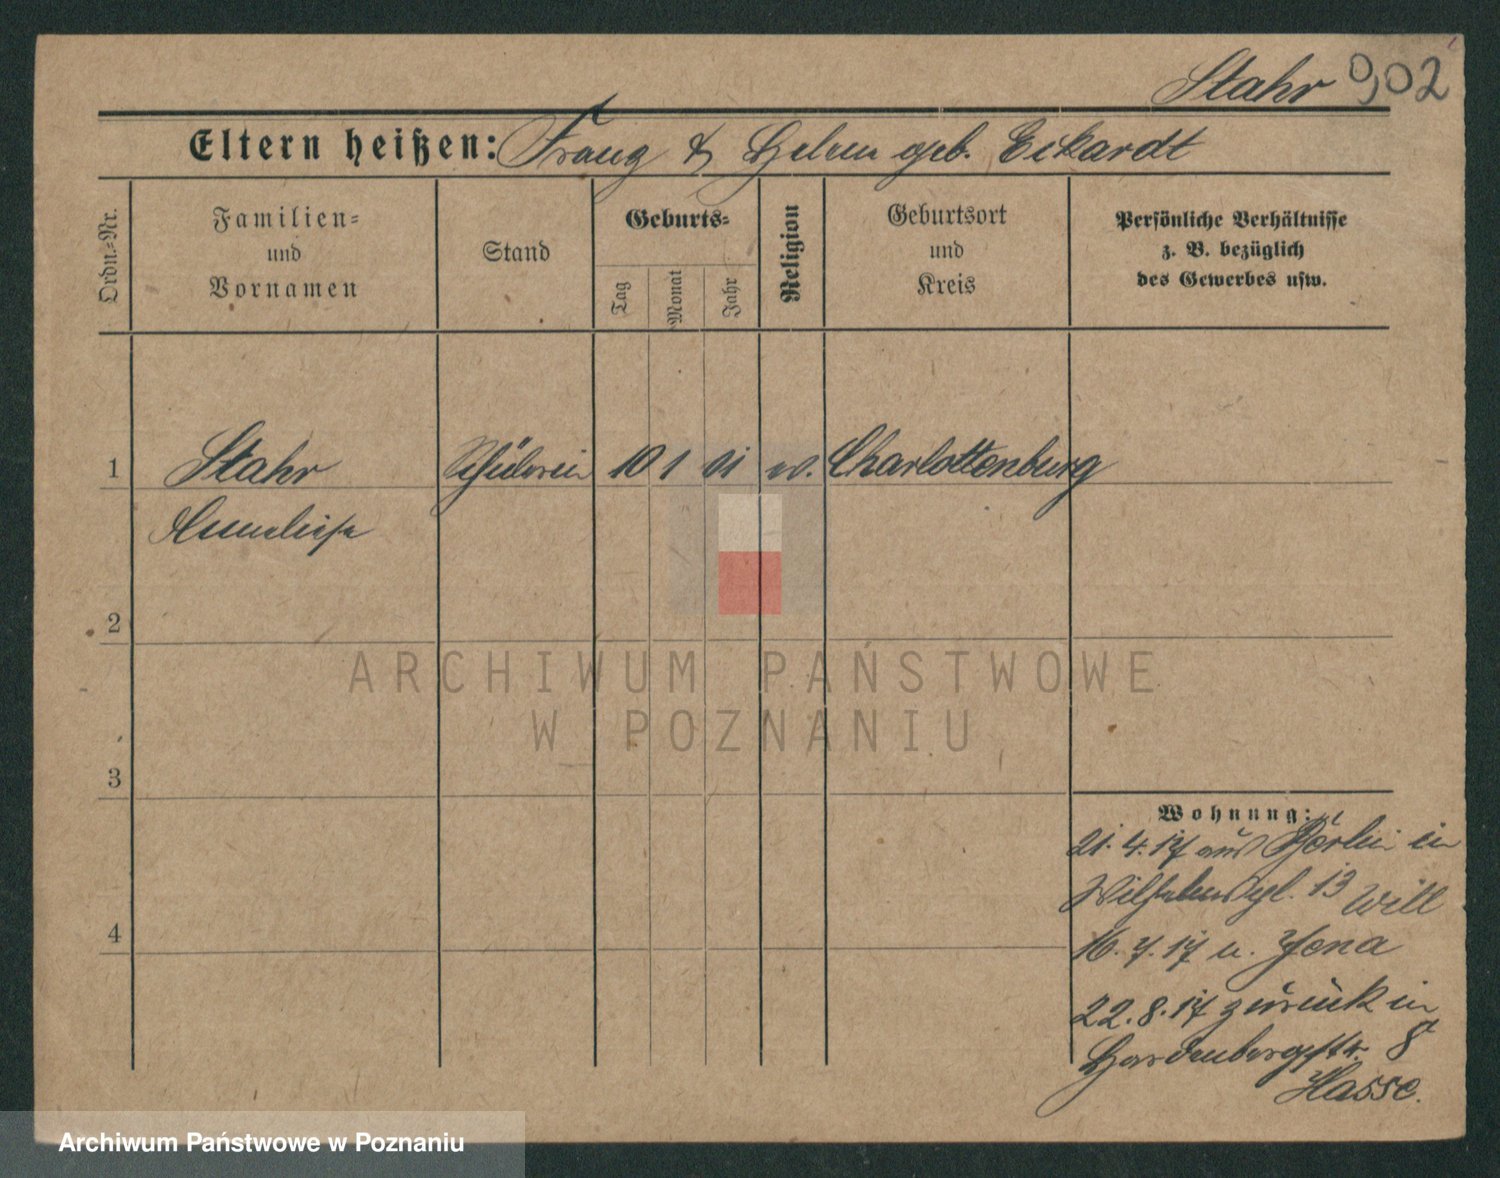 Stahr 902
Eltern heißen: Franz & Helene geb. Eckardt
Ordn.-Nr.
Familien-
und
Vornamen
Stand
Geburts-
Tag
Monat
Jahr
Religion
Geburtsort
und
Kreis
Persönliche Verhältnisse
z. B. bezüglich
des Gewerbes usw.
1 Stahr Schülerin 10 1 01 ev. Charlottenburg
Anneliese
2
3
4
Wohnung:
21.4.17 aus Berlin in
Wilhelmspl. 13 Will
16.7.17 n. Jena
22.8.17 zurück in
Hardenbergstr. 8
Hasse.
ARCHIWUM PAŃSTWOWE
W POZNANIU
Archiwum Państwowe w Poznaniu